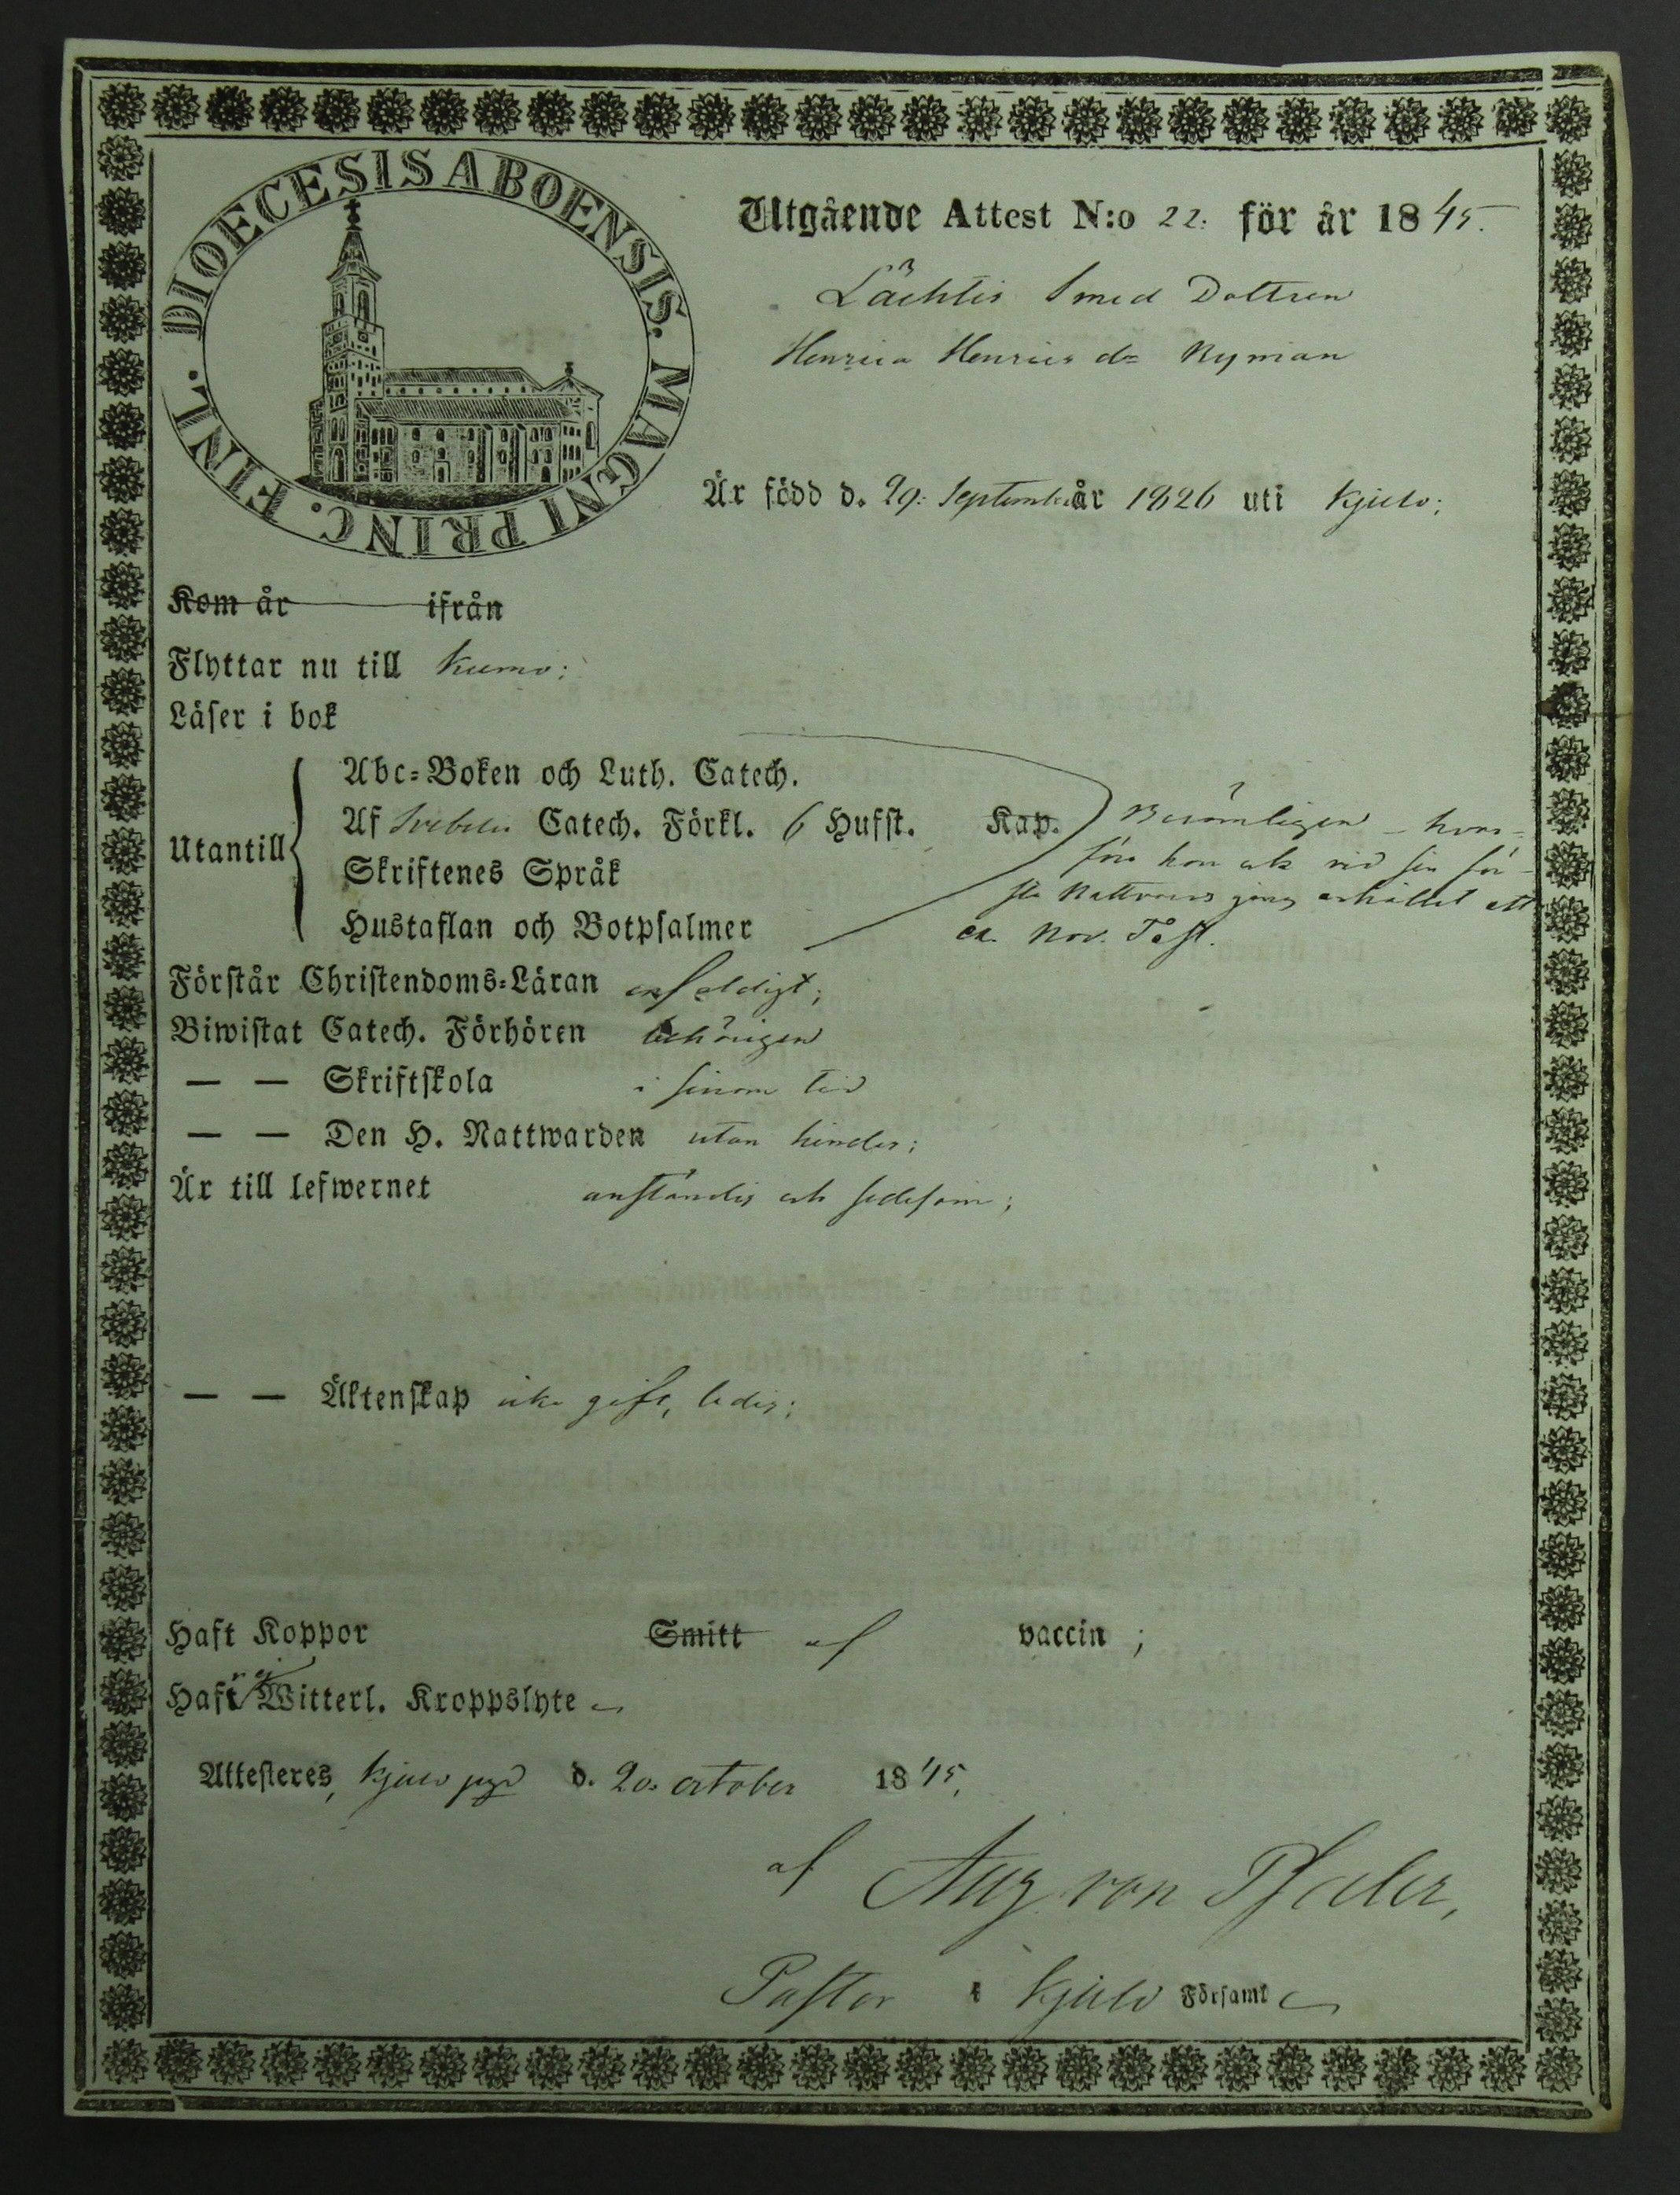 DIOECESIS ABOENSIS. MAGNI PRINC. FINL.
Utgående Attest N:o 22. för år 1845.
Lächtis Smed Dottren
Henrica Henrics dr Nyman
Är född d. 29. September år 1826 uti Kjulo;
Kom år ifrån
Flyttar nu till Kumo;
Läser i bok
Utantill
Abc-Boken och Luth. Catech.
Af Svebelii Catech. Förkl. 6 Hufst. Kap.
Skriftenes Språk
Hustaflan och Botpsalmer
Berömligen - hvar-
före hon ock vid sin för-
sta Nattvards gång erhållet ett
ex. Nov. Test.
Förstår Christendoms-Läran enfaldigt;
Biwistat Catech. Förhören behörigen
— — Skriftskola i sinom tid
— — Den H. Nattwarden utan hinder;
Är till lefwernet anständig och sedesam;
— — Äktenskap icke gift, ledig;
Haft Koppor Smitt af vaccin ;
Haft ej Witterl. Kroppslyte
Attesteres, Kjulo d. 20. October 1845,
af Aug. von Pfaler,
Pastor i Kjulo Församl